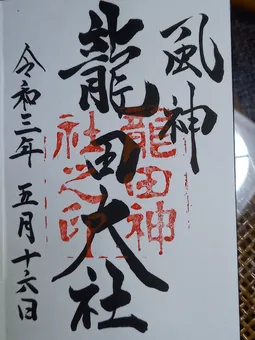 風神
龍田大社
令和三年 五月十六日
龍田神
社之印